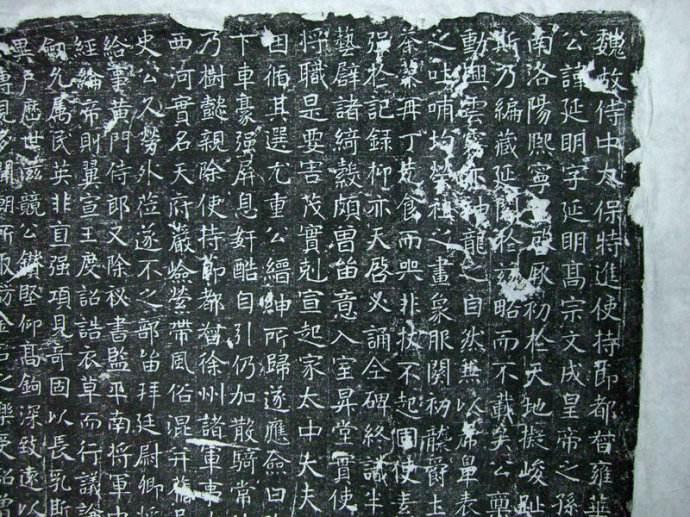 魏故侍中太保特進使持節都督雍華
公諱延明字延明高宗文成皇帝之孫
南洛陽熙寧里啓厥初於天地擬峻趾
斯乃編藏延閣於經略而不載矣公稟
動興雲雾亦神龍之自然燕以席皐表
之吐哺均營祖之畫象服闋初襲爵土
荼蓼再丁荒食而哭非扶不起圖使素
强於記録抑亦天啓必誦仝碑終識半
藝辟諸綺縠頗曾留意入室昇堂貫使
將職是要害茂實剋宣起家太中大夫
因循其選尤重公縉紳所歸遂應僉曰
下車豪强屏息奸酷自引仍加散騎常
乃樹懿親除使持節都督徐州諸軍事
西河實名天府嚴嶮縈帶風俗混并
史公久勞外莅遂不之部留拜廷尉卿將
給事黄門侍郎又除秘書監平南將軍中
經綸帝則翼宣王度詔誥衣草而行議論
允属民英非直强項見奇固以長乳斯
異户歷世滋競公鑽堅仰髙鉤深致遠以
博見多聞朝所取訪金石之樂受詔曽